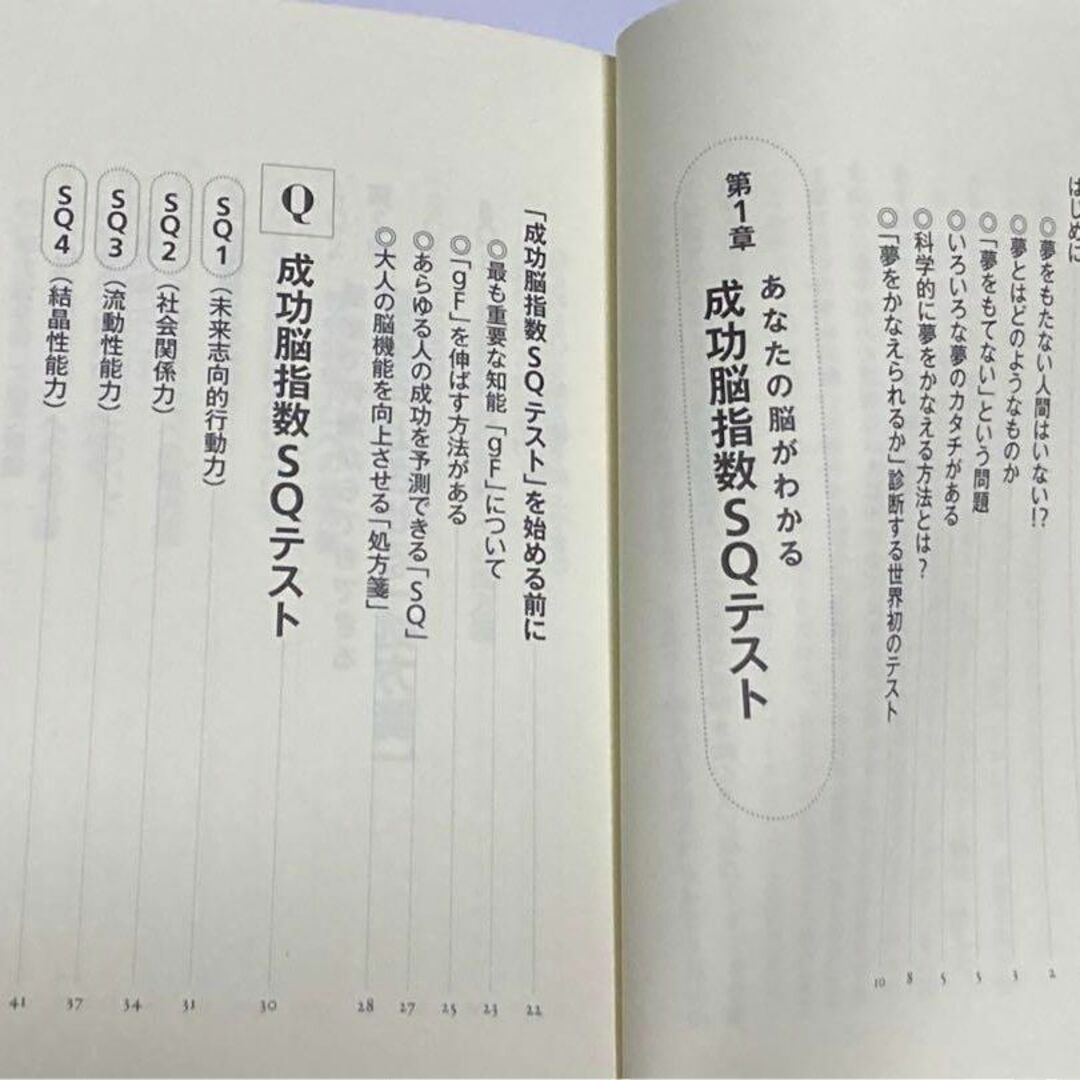 はじめに
◎夢をもたない人間はいない!? 2
◎夢とはどのようなものか 3
◎「夢をもてない」という問題 5
◎いろいろな夢のカタチがある 5
◎科学的に夢をかなえる方法とは? 8
◎「夢をかなえられるか」診断する世界初のテスト 10
第1章 あなたの脳がわかる
成功脳指数SQテスト
「成功脳指数SQテスト」を始める前に 22
◎最も重要な知能「gF」について 23
◎「gF」を伸ばす方法がある 25
◎あらゆる人の成功を予測できる「SQ」 27
◎大人の脳機能を向上させる「処方箋」 28
Q 成功脳指数SQテスト 30
SQ1（未来志向的行動力） 31
SQ2（社会関係力） 34
SQ3（流動性能力） 37
SQ4（結晶性能力） 41